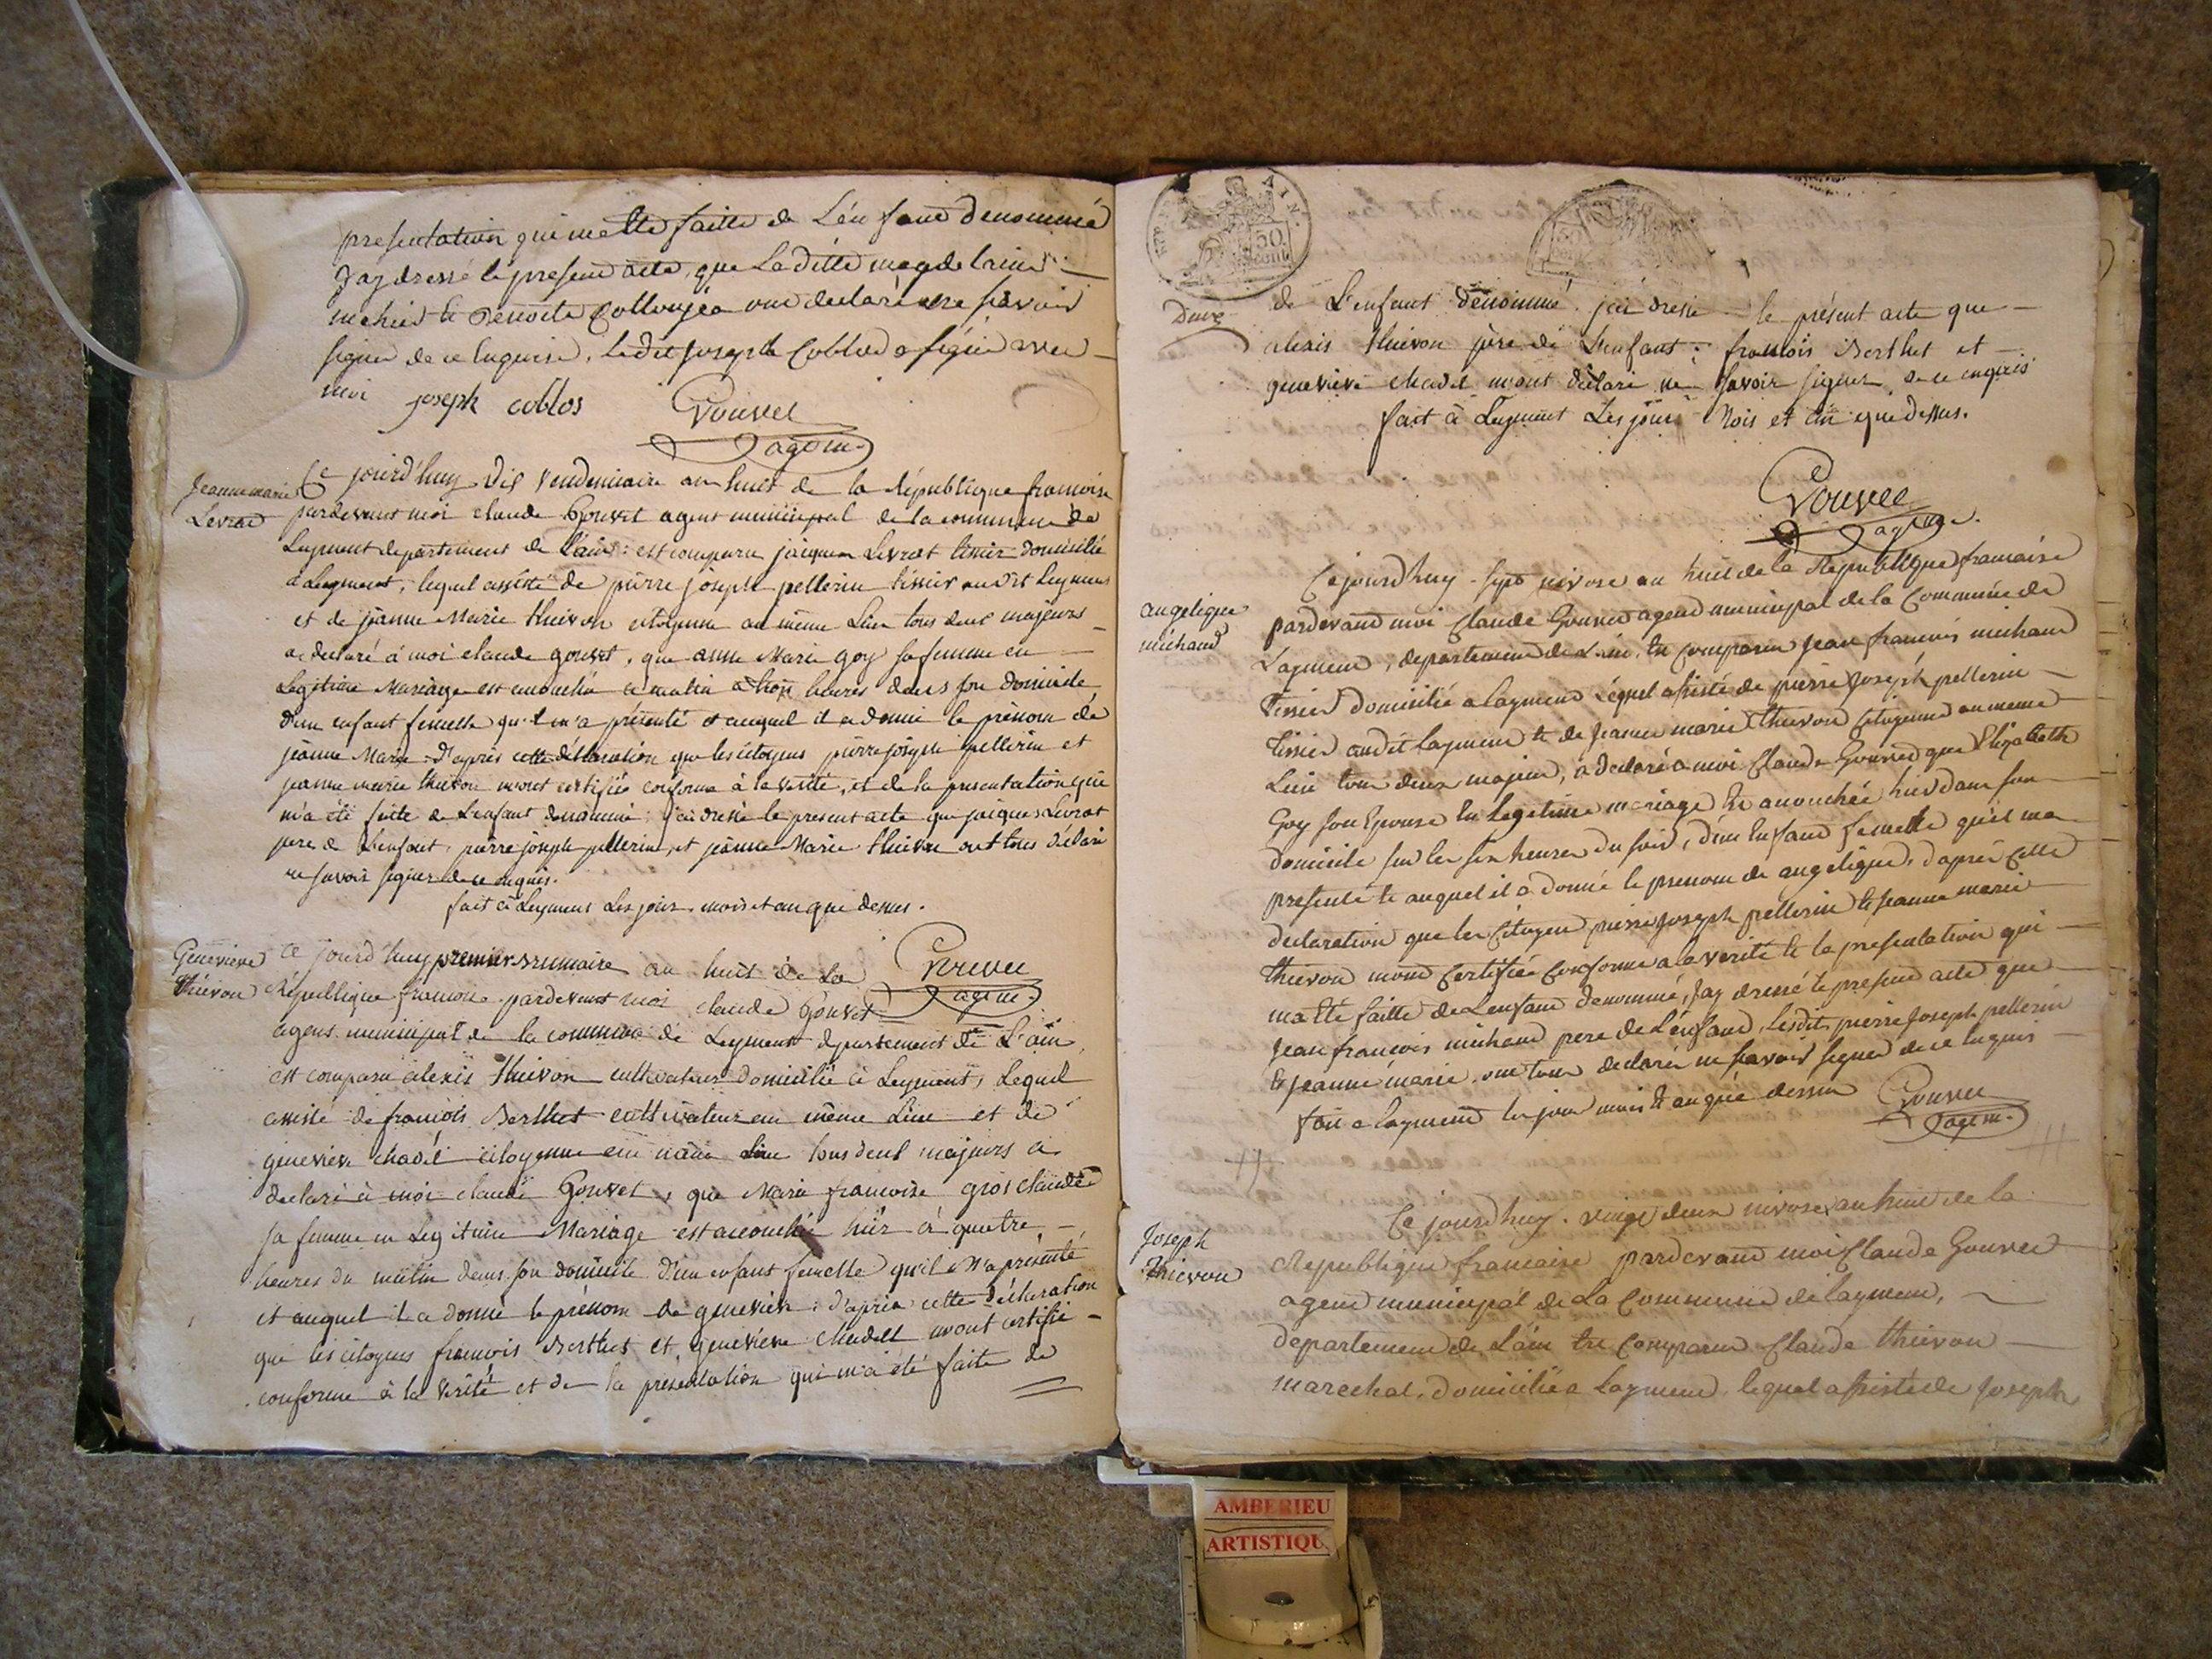 presentation qui ma Ete faitte de L'enfant denommé
Jay dressé le present acte, que La ditte magdelaine
michud et Benoite Collonjea ont declaré ne savoir
signer de ce Enquise, Ledit Joseph Coblod a signé avec
moi joseph coblos Gouvet
agem.
Jeanne marie
Levrat
Ce jourd'huy dix vendemiaire an huit de la République francoise
pardevant moi claude Gouvet agent municipal de la commune de
Leyment departement de L'ain: est comparu jaiques Levrat tissier domicilié
a Leyment, lequel assisté de pierre joseph pellerin tissier audit Leyment
et de jeanne Marie thievon citoyenne au même Lieu tous deux majeurs
a declaré à moi claude gouvet, que anne Marie goy sa femme en
Legitime Mariage est accouchée ce matin a trois heures dans son domicile
d'un enfant femelle qu'il m'a présenté et auquel il a donné le prénom de
jeanne Marie D'après cette déclaration que les citoyens pierre joseph pellerin et
jeanne marie thievon m'ont certifiés conforme à la verité, et de la presentation qui
m'a été faite de L'enfant denommé; j'ai dressé le present acte que jaiques Levrat
pere de L'enfant, pierre joseph pellerin, et jeanne Marie thievon ont tous déclaré
ne savoir signer de ce enquis.
fait à Leyment Les jour, mois et an que dessus.
Gouvet
agem.
Genevieve
thievon
Ce jourd'huy premier brumaire an huit de La
République francoise pardevant moi claude Gouvet
agent municipal de la commune de Leyment departement de L'ain
est comparu alexis thievon cultivateur domicilié à Leyment, Lequel
assisté de francois Berthet cultivateur au même Lieu et de
genevieve chadel citoyenne au même Lieu tous deux majeurs a
declaré à moi claude Gouvet, que Marie francoise gros claude
sa femme en Legitime Mariage est accouchée hièr à quatre
heures du matin dans son domicile D'un enfant femelle qu'il M'a présenté
et auquel il a donné le prénom de genevieve; d'après cette déclaration
que les citoyens francois Berthet et genevieve chadel m'ont certifié
conforme à la Vérité et de la presentation qui m'a été faite de
AIN.
50
cent
Deux
de L'enfant dénommé, j'ai dressé le présent acte que
alexis thievon père de L'enfant; francois Berthet et
genevieve chadel m'ont déclaré ne savoir signer de ce enquis
fait à Leyment Les jour Mois et an que dessus.
Gouvet
agem.
angelique
michaud
Ce jourd'huy sept nivose an huit de la Republique francaise
pardevant moi Claude Gouvet agent municipal de la Commune de
Layment, departement de L'ain, Est comparu Jean francois michaud
tissier domicilié a layment Lequel assisté de pierre Joseph pellerin
tissier audit layment et de Jeanne marie thievon Citoyenne au meme
Lieu tous deux majeur, a declaré a moi Claude Gouvet que Elizabeth
Goy son Epouse En Legitime mariage Est accouchée hier dans son
domicile sur les six heures du soir, d'un Enfant femelle qu'il ma
presenté et auquel il a donné le prenom de angelique, d'après Cette
declaration que les Citoyen pierre Joseph pellerin et Jeanne marie
thievon mont Certifiée Conforme a la verité et la presentation qui
ma Ete faitte de Lenfant denommé, Jay dressé le present acte que
Jean francois michaud pere de L'enfant, Lesdits pierre Joseph pellerin
et Jeanne marie ont tous declarés ne savoir signer de ce Enquis
fait a layment les jour mois et an que dessus Gouvet
agem.
Joseph
thievon
Ce jourd'huy vingt deux nivose an huit de la
Republique francaise pardevant moi Claude Gouvet
agent municipal de La Commune de layment,
departement de L'ain Est Comparu Claude thievon
marechal, domicilié a Layment, lequel assisté de Joseph
AMBERIEU
ARTISTIQU